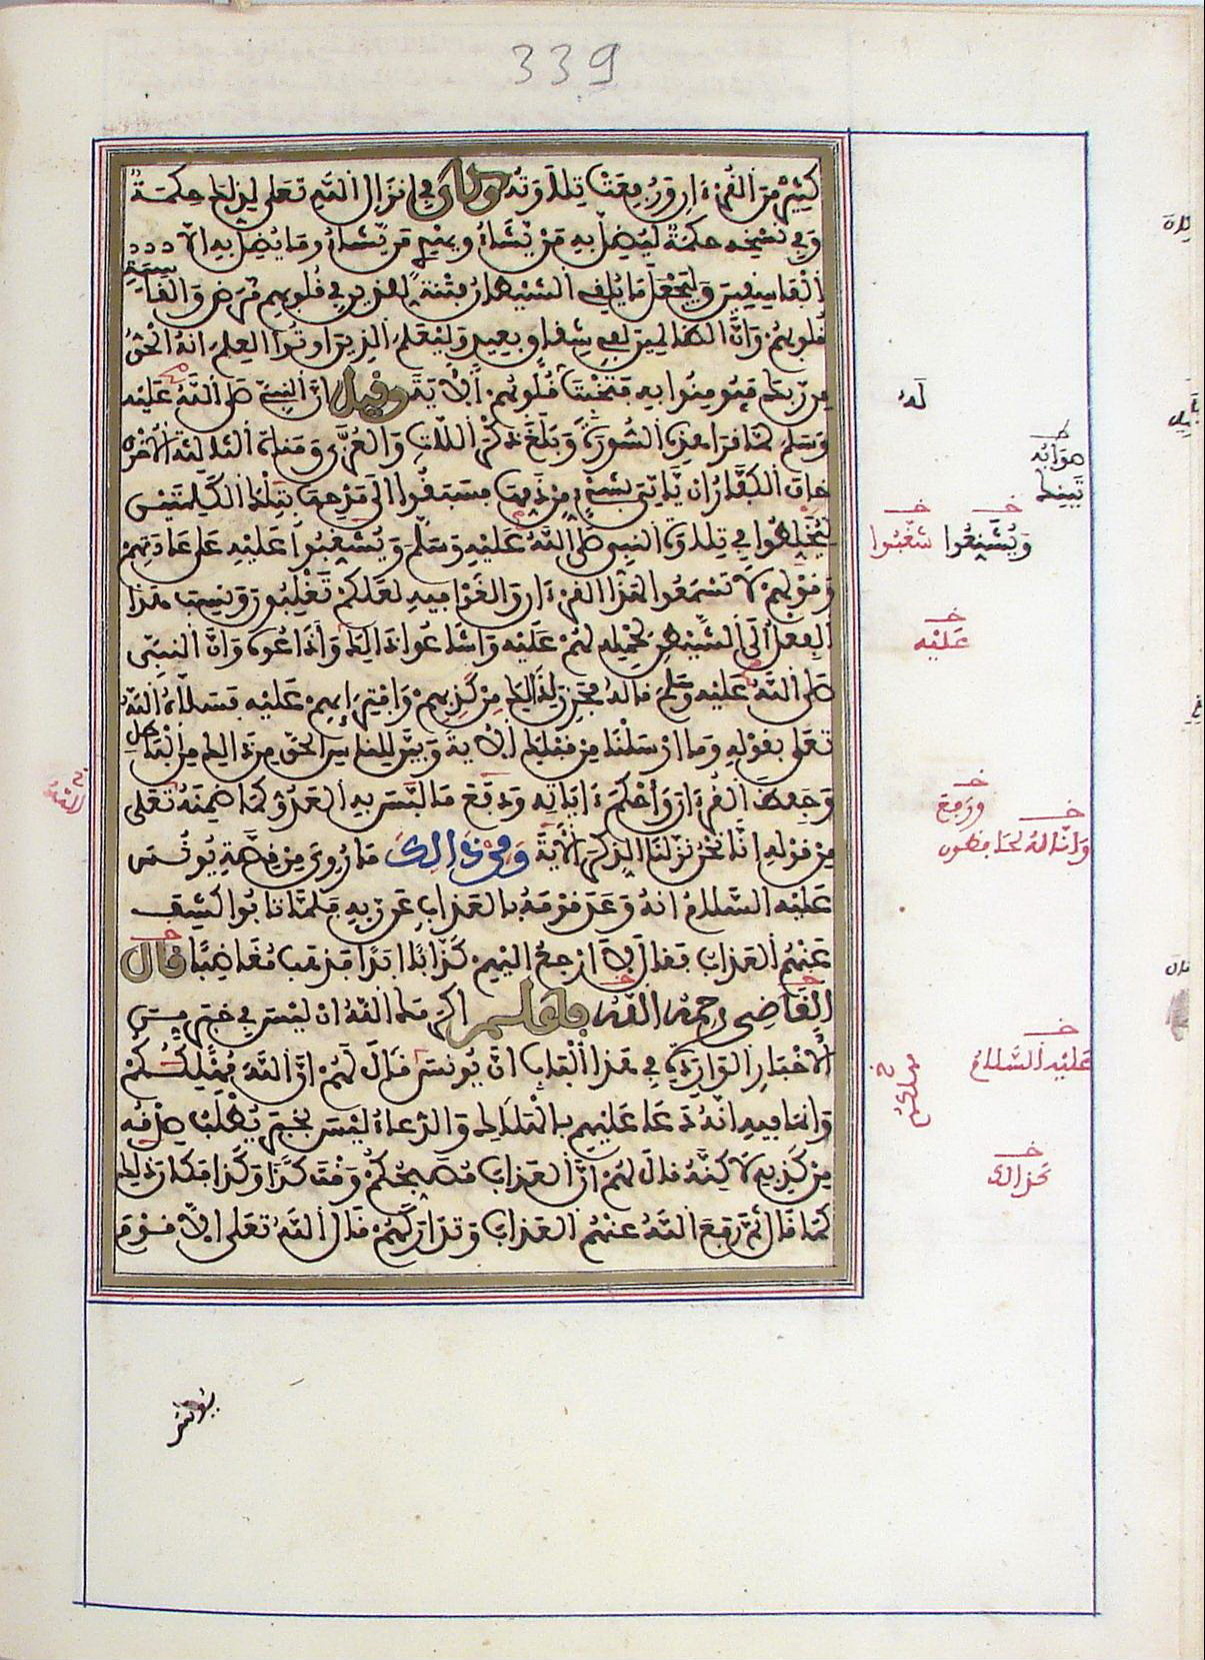 339
كثير من القرءان ورفعت تلاوته وكان في انزال الله تعلى لذلك حكمة
وفي نسخه حكمة ليضل به من يشاء ويهدي من يشاء وما يضل به الا
الفاسقين وليجعل ما يلقي الشيطان فتنة للذين في قلوبهم مرض والقاسية
قلوبهم وان الظالمين لفي شقاق بعيد وليعلم الذين اوتوا العلم انه الحق
من ربك فيومنوا به فتخبت قلوبهم الاية وقيل ان النبيء صلى الله عليه
وسلم لما قرا هذه السورة وبلغ ذكر اللات والعزى ومناة الثالثة الاخرى
خاف الكفار ان ياتي بشيء من ذمها فسبقوا الى مدحها بتلك الكلمتين
ليخلطوا في تلاوة النبي صلى الله عليه وسلم ويشغبوا عليه على عادتهم
وقولهم لا تسمعوا لهذا القرءان والغوا فيه لعلكم تغلبون ونسب هذا
الفعل الى الشيطن لحمله لهم عليه واشاعوا ذالك واذاعوه وان النبي
صلى الله عليه وسلم قاله فحزن لذالك من كذبهم وافترايهم عليه فسلاه الله
تعلى بقوله وما ارسلنا من قبلك الاية وبين للناس الحق من ذالك من الباطل
وحفظ القرءان واحكم ءاياته ودفع ما لبس به العدو كما ضمنه تعلى
من قوله انا نحن نزلنا الذكر الاية ومن ذالك ما روي من قصة يونس
عليه السلام انه وعد قومه بالعذاب عن ربه فلما تابوا كشف
عنهم العذاب فقال لا ارجع اليهم كذابا ابدا فذهب مغاضبا قال
القاضي رحمه الله فاعلم اكرمك الله ان ليس في خبر من
الاخبار الواردة في هذا الباب ان يونس قال لهم ان الله مهلككم
وانما فيه انه دعا عليهم بالهلاك والدعاء ليس بخبر يطلب صدقه
من كذبه لاكنه قال لهم ان العذاب مصبحكم وقت كذا وكذا فكان ذلك
كما قال ثم رفع الله عنهم العذاب وتداركهم قال الله تعلى الا قوم
له
ويشنعوا
شغبوا
عليه
ودفع
وانا له لحافظون
الله
عليه السلام
مهلككم
كذالك
يونس